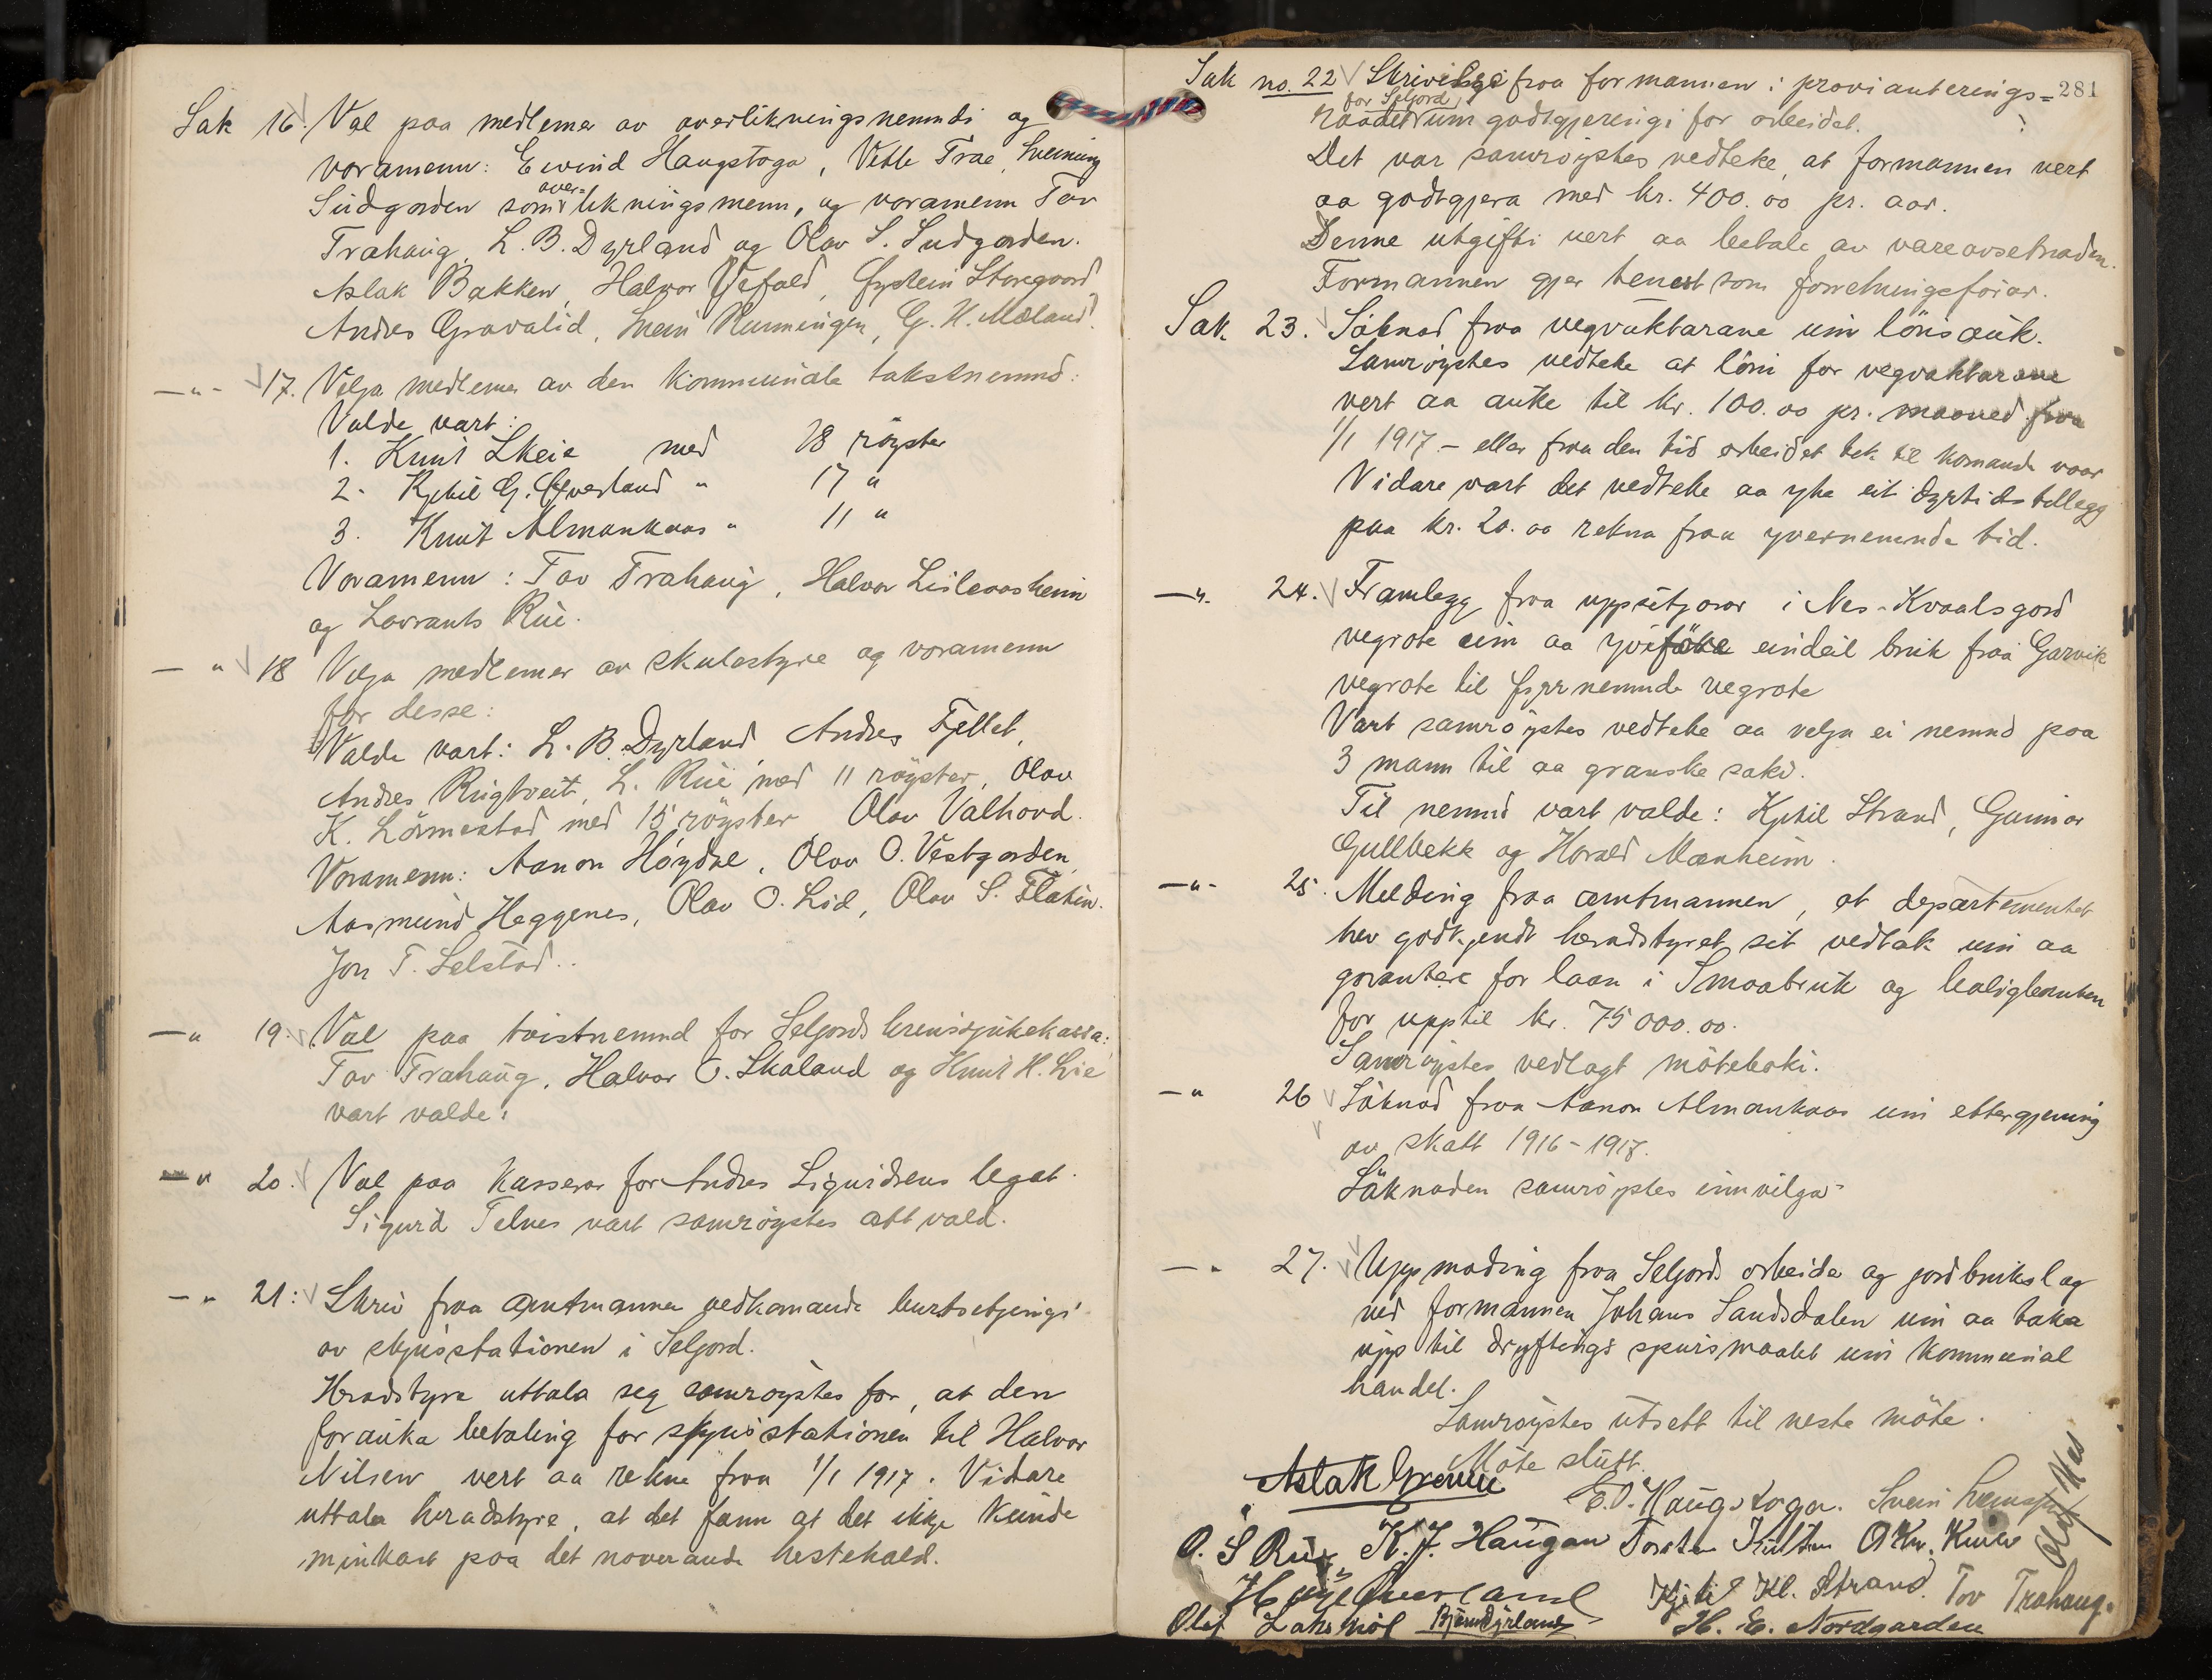 Sak 16. Val paa medlemer av overlikningsnemndi og
voramenn: Eivind Haugstoga, Vetle Trae, Sveinung
Sudgarden som over=likningsmenn, og voramenn Tov
Trahaug, L. B. Dyrland og Olav S. Sudgarden.
Aslak Bakken, Halvor Öyfald, Öystein Storegaard
Andres Gravalid, Svein Rumingen, G. H. Mæland.
—"- 17. Velja medlemer av den kommunale takstnemnd:
Valde vart:
1. Knut Skeie med 18 röyster
2. Kjetil G. Överland " 17 "
3. Knut Almankaas " 11 "
Voramenn: Tov Trahaug, Halvor Lisleaasheim
og Lavrants Rue.
— " 18 Velja medlemer av skulestyre og voramenn
for desse:
Valde vart: L. B. Dyrland Andres Fjellet,
Andres Rugtveit, L. Rue med 11 röyster, Olav
K. Lörmestad med 15 röyster Olav Valhovd.
Voramenn: Aanon Höydal, Olav O. Vestgarden,
Aasmund Heggenes, Olav O. Lid, Olav S. Flatin.
Jon T. Selstad..
—" 19. Val paa tvistnemnd for Seljords krinssjukekassa:
Tov Trahaug, Halvor O. Skaland og Knut H. Lie
vart valde.
—" 20. Val paa kasserar for Andres Sigurdsens legat.
Sigurd Telnes vart samröystes att vald.
—" 21: Skriv fraa amtmannen vedkomande burtsetjingi
av skjusstationen i Seljord.
Heradstyre uttala seg samröystes for, at den
forauka betaling for skjusstationen til Halvor
Nilsen vert aa rekna fraa 1/1 1917. Vidare
uttala heradstyre, at det fann at det ikkje kunde
minkast paa det noverande hestehald.
281
Sak no. 22 Skrivelse fraa formannen i provianterings=
raadet for Seljord, um godtgjeringi for arbeidet.
Det var samröystes vedteke, at formannen vert
aa godtgjera med kr. 400.00 pr. aar.
Denne utgifti vert aa betala av vareavsetnaden.
Formannen gjer tenest som forretningsförar.
Sak 23. Söknad fraa vegvaktarane um lönsauk.
Samröystes vedteke at löni for vegvaktarane
vert aa auke til kr. 100.00 pr. maaned fraa
1/1 1917 - eller fraa den tid arbeidet tek til komande vaar
Vidare vart det vedteke aa yte eit dyrtidstillegg
paa kr. 20.00 rekna fraa yvernemnde tid.
—"- 24. Framlegg fraa uppsitjarar i Nes-Kvaalsgard
vegrote um aa yverföre eindeil bruk fraa Garvik
vegrote til fyrrnemnde vegrote
Vart samröystes vedteke aa velja ei nemnd paa
3 mann til aa granske saki.
Til nemnd vart valde: Kjetil Strand, Gunnar
Gullbekk og Harald Manheim.
—"- 25. Melding fraa amtmannen, at departementet
hev godkjendt heradstyret sit vedtak um aa
garantere for laan i Smaabruk og boligbanken
for upptil kr. 75000.00.
Samröystes vedlagt möteboki.
—" 26 Söknad fraa Aanon Almankaas um ettergjeving
av skatt 1916-1917.
Söknaden samröystes innvilga.
—" 27. Uppmoding fraa Seljords arbeidar og jordbrukslag
ved formannen Johans Sandsdalen um aa taka
upp til dryftings spursmaalet um kommunal
handel.
Samröystes utsett til neste möte.
Möte slutt.
Aslak Grenne E. O. Haugstoga. Svein
Olaf Nes
O. S Rue K. J. Haugan Torstein Kultan O Kn.
H Överland Kjetil Kl. Strand. Tov Trahaug.
Olaf Laksnöl Björn Dyrland H. E. Nordgarden